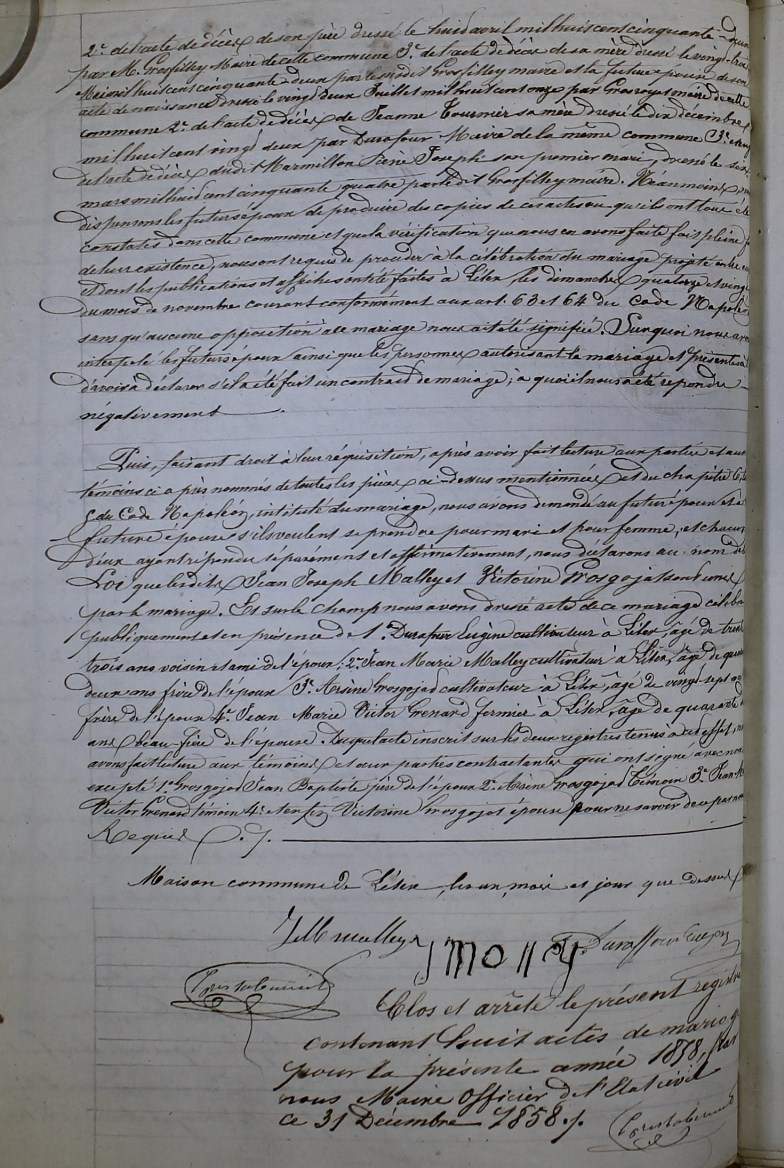 2° de l'acte de décès de son père dressé le huit avril mil huit cent cinquante-deux
par M. Grosfilley Maire de cette commune 3° de l'acte de décès de sa mère dressé le vingt-trois
Mai mil huit cent cinquante-deux par le susdit Grosfilley maire et la future épouse de son
acte de naissance dressé le vingt deux Juillet mil huit cent onze par Grosroyet maire de cette
commune 2° de l'acte de décès de Jeanne Tournier sa mère dressé le dix décembre
mil huit cent vingt deux par Duraffour Maire de la même commune 3° de
de l'acte de décès dudit Marmillon René Joseph son premier mari, dressé le seize
mars mil huit cent cinquante quatre par le dit Grosfilley maire. Néanmoins, nous
dispensons les futurs époux de produire des copies de ces actes vu qu'ils ont tous été
constatés dans cette commune et que la vérification que nous en avons faite fait pleine foi
de leur existence, nous ont requis de procéder à la célébration du mariage projeté entre eux
et dont les publications et affiches ont été faites à Lélex, les dimanches quatorze et vingt
du mois de novembre courant conformément aux art. 63 et 64 du Code Napoléon
sans qu'aucune opposition à ce mariage nous ait été signifiée. Sur quoi nous avons
interpelé les futurs époux ainsi que les personnes autorisant le mariage et présentes à
d'avoir à déclarer s'il a été fait un contrat de mariage; à quoi il nous a été répondu
négativement.
Puis, faisant droit à leur réquisition, après avoir fait lecture aux parties et aux
témoins ci après nommés de toutes les pièces ci-dessus mentionnées et du chapitre 6, t.
5 du Code Napoléon, intitulé du mariage, nous avons demandé au futur époux et à la
future épouse s'ils veulent se prendre pour mari et pour femme, et chacun
d'eux ayant répondu séparément et affirmativement, nous déclarons au nom de la
Loi que lesdits Jean Joseph Malley et Victorine Grosgojat sont unis
par le mariage. Et sur le champ nous avons dressé acte de ce mariage célébré
publiquement et en présence de 1° Duraffour Eugène cultivateur à Lélex, âgé de trente
trois ans voisin et ami de l'époux; 2° Jean Marie Malley cultivateur à Lélex, âgé de quarante
deux ans frère de l'époux 3° Arsène Grosgojat cultivateur à Lélex, âgé de vingt sept ans
frère de l'épouse 4° Jean Marie Victor Grenard fermier à Lélex, âgé de quarante
ans beau-frère de l'épouse. Duquel acte inscrit sur les deux registres tenus à cet effet, nous
avons fait lecture aux témoins et aux parties contractantes qui ont signé avec nous
excepté 1° Grosgojat Jean Baptiste père de l'épouse 2° Arsène Grosgojat témoin 3° Jean M.
Victor Grenard témoin 4° et enfin Victorine Grosgojat épouse pour ne savoir de ce par nous
Requis.
Maison commune de Lélex, les an, mois et jour que dessus
J M malley Duraffour Eugène
Clos et arrêté le présent registre
contenant huit actes de mariage
pour la présente année 1858, par
nous Maire officier de l'Etat civil
ce 31 Décembre 1858.